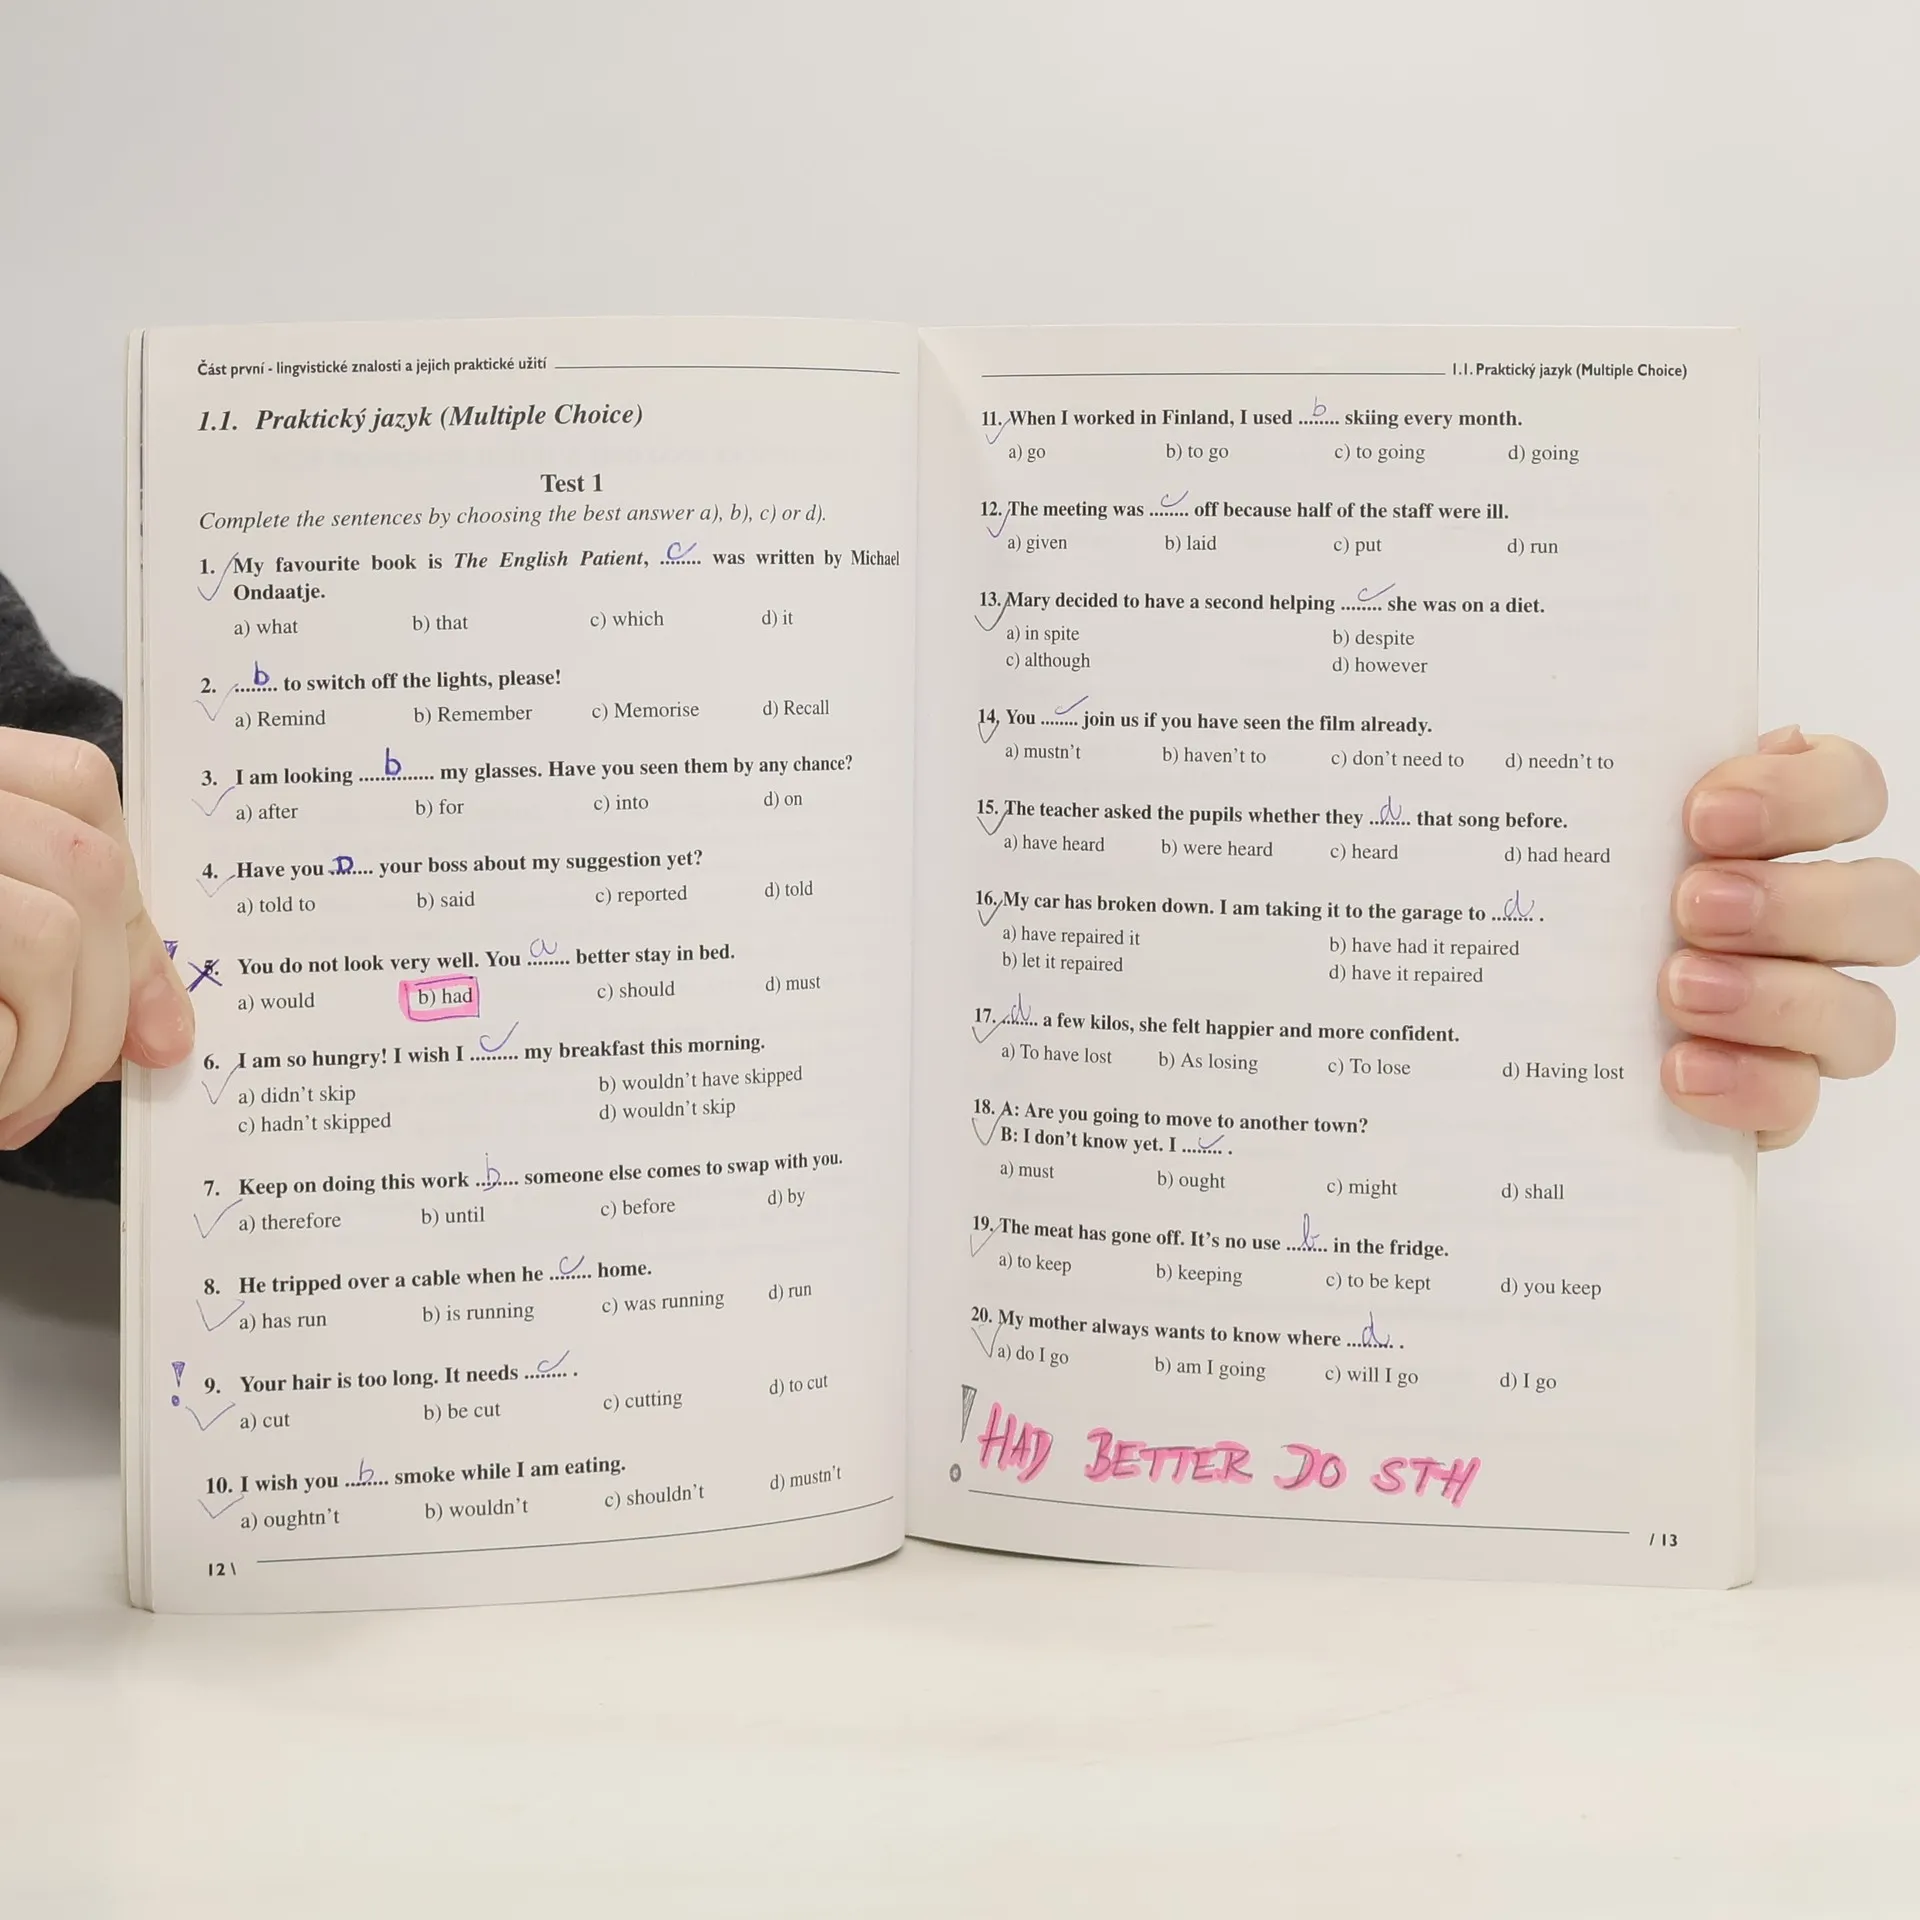 Část první - lingvistické znalosti a jejich praktické užití
1.1. Praktický jazyk (Multiple Choice)
Test 1
Complete the sentences by choosing the best answer a), b), c) or d).
1. My favourite book is The English Patient, ...c..... was written by Michael
Ondaatje.
a) what b) that c) which d) it
2. ...b..... to switch off the lights, please!
a) Remind b) Remember c) Memorise d) Recall
3. I am looking ......b........ my glasses. Have you seen them by any chance?
a) after b) for c) into d) on
4. Have you ..D...... your boss about my suggestion yet?
a) told to b) said c) reported d) told
5. You do not look very well. You ...a..... better stay in bed.
a) would b) had c) should d) must
6. I am so hungry! I wish I ....c..... my breakfast this morning.
a) didn't skip b) wouldn't have skipped
c) hadn't skipped d) wouldn't skip
7. Keep on doing this work ...b..... someone else comes to swap with you.
a) therefore b) until c) before d) by
8. He tripped over a cable when he ...c..... home.
a) has run b) is running c) was running d) run
! 9. Your hair is too long. It needs ...c..... .
a) cut b) be cut c) cutting d) to cut
10. I wish you ...b..... smoke while I am eating.
a) oughtn't b) wouldn't c) shouldn't d) mustn't
12 \
1.1. Praktický jazyk (Multiple Choice)
11. When I worked in Finland, I used ...b..... skiing every month.
a) go b) to go c) to going d) going
12. The meeting was ...c..... off because half of the staff were ill.
a) given b) laid c) put d) run
13. Mary decided to have a second helping ...c..... she was on a diet.
a) in spite b) despite
c) although d) however
14, You ...c..... join us if you have seen the film already.
a) mustn't b) haven't to c) don't need to d) needn't to
15. The teacher asked the pupils whether they ...d..... that song before.
a) have heard b) were heard c) heard d) had heard
16. My car has broken down. I am taking it to the garage to ...d..... .
a) have repaired it b) have had it repaired
b) let it repaired d) have it repaired
17. ...d..... a few kilos, she felt happier and more confident.
a) To have lost b) As losing c) To lose d) Having lost
18. A: Are you going to move to another town?
B: I don't know yet. I ...c..... .
a) must b) ought c) might d) shall
19. The meat has gone off. It's no use ...b..... in the fridge.
a) to keep b) keeping c) to be kept d) you keep
20. My mother always wants to know where ...d...... .
a) do I go b) am I going c) will I go d) I go
! HAD BETTER DO STH
/ 13